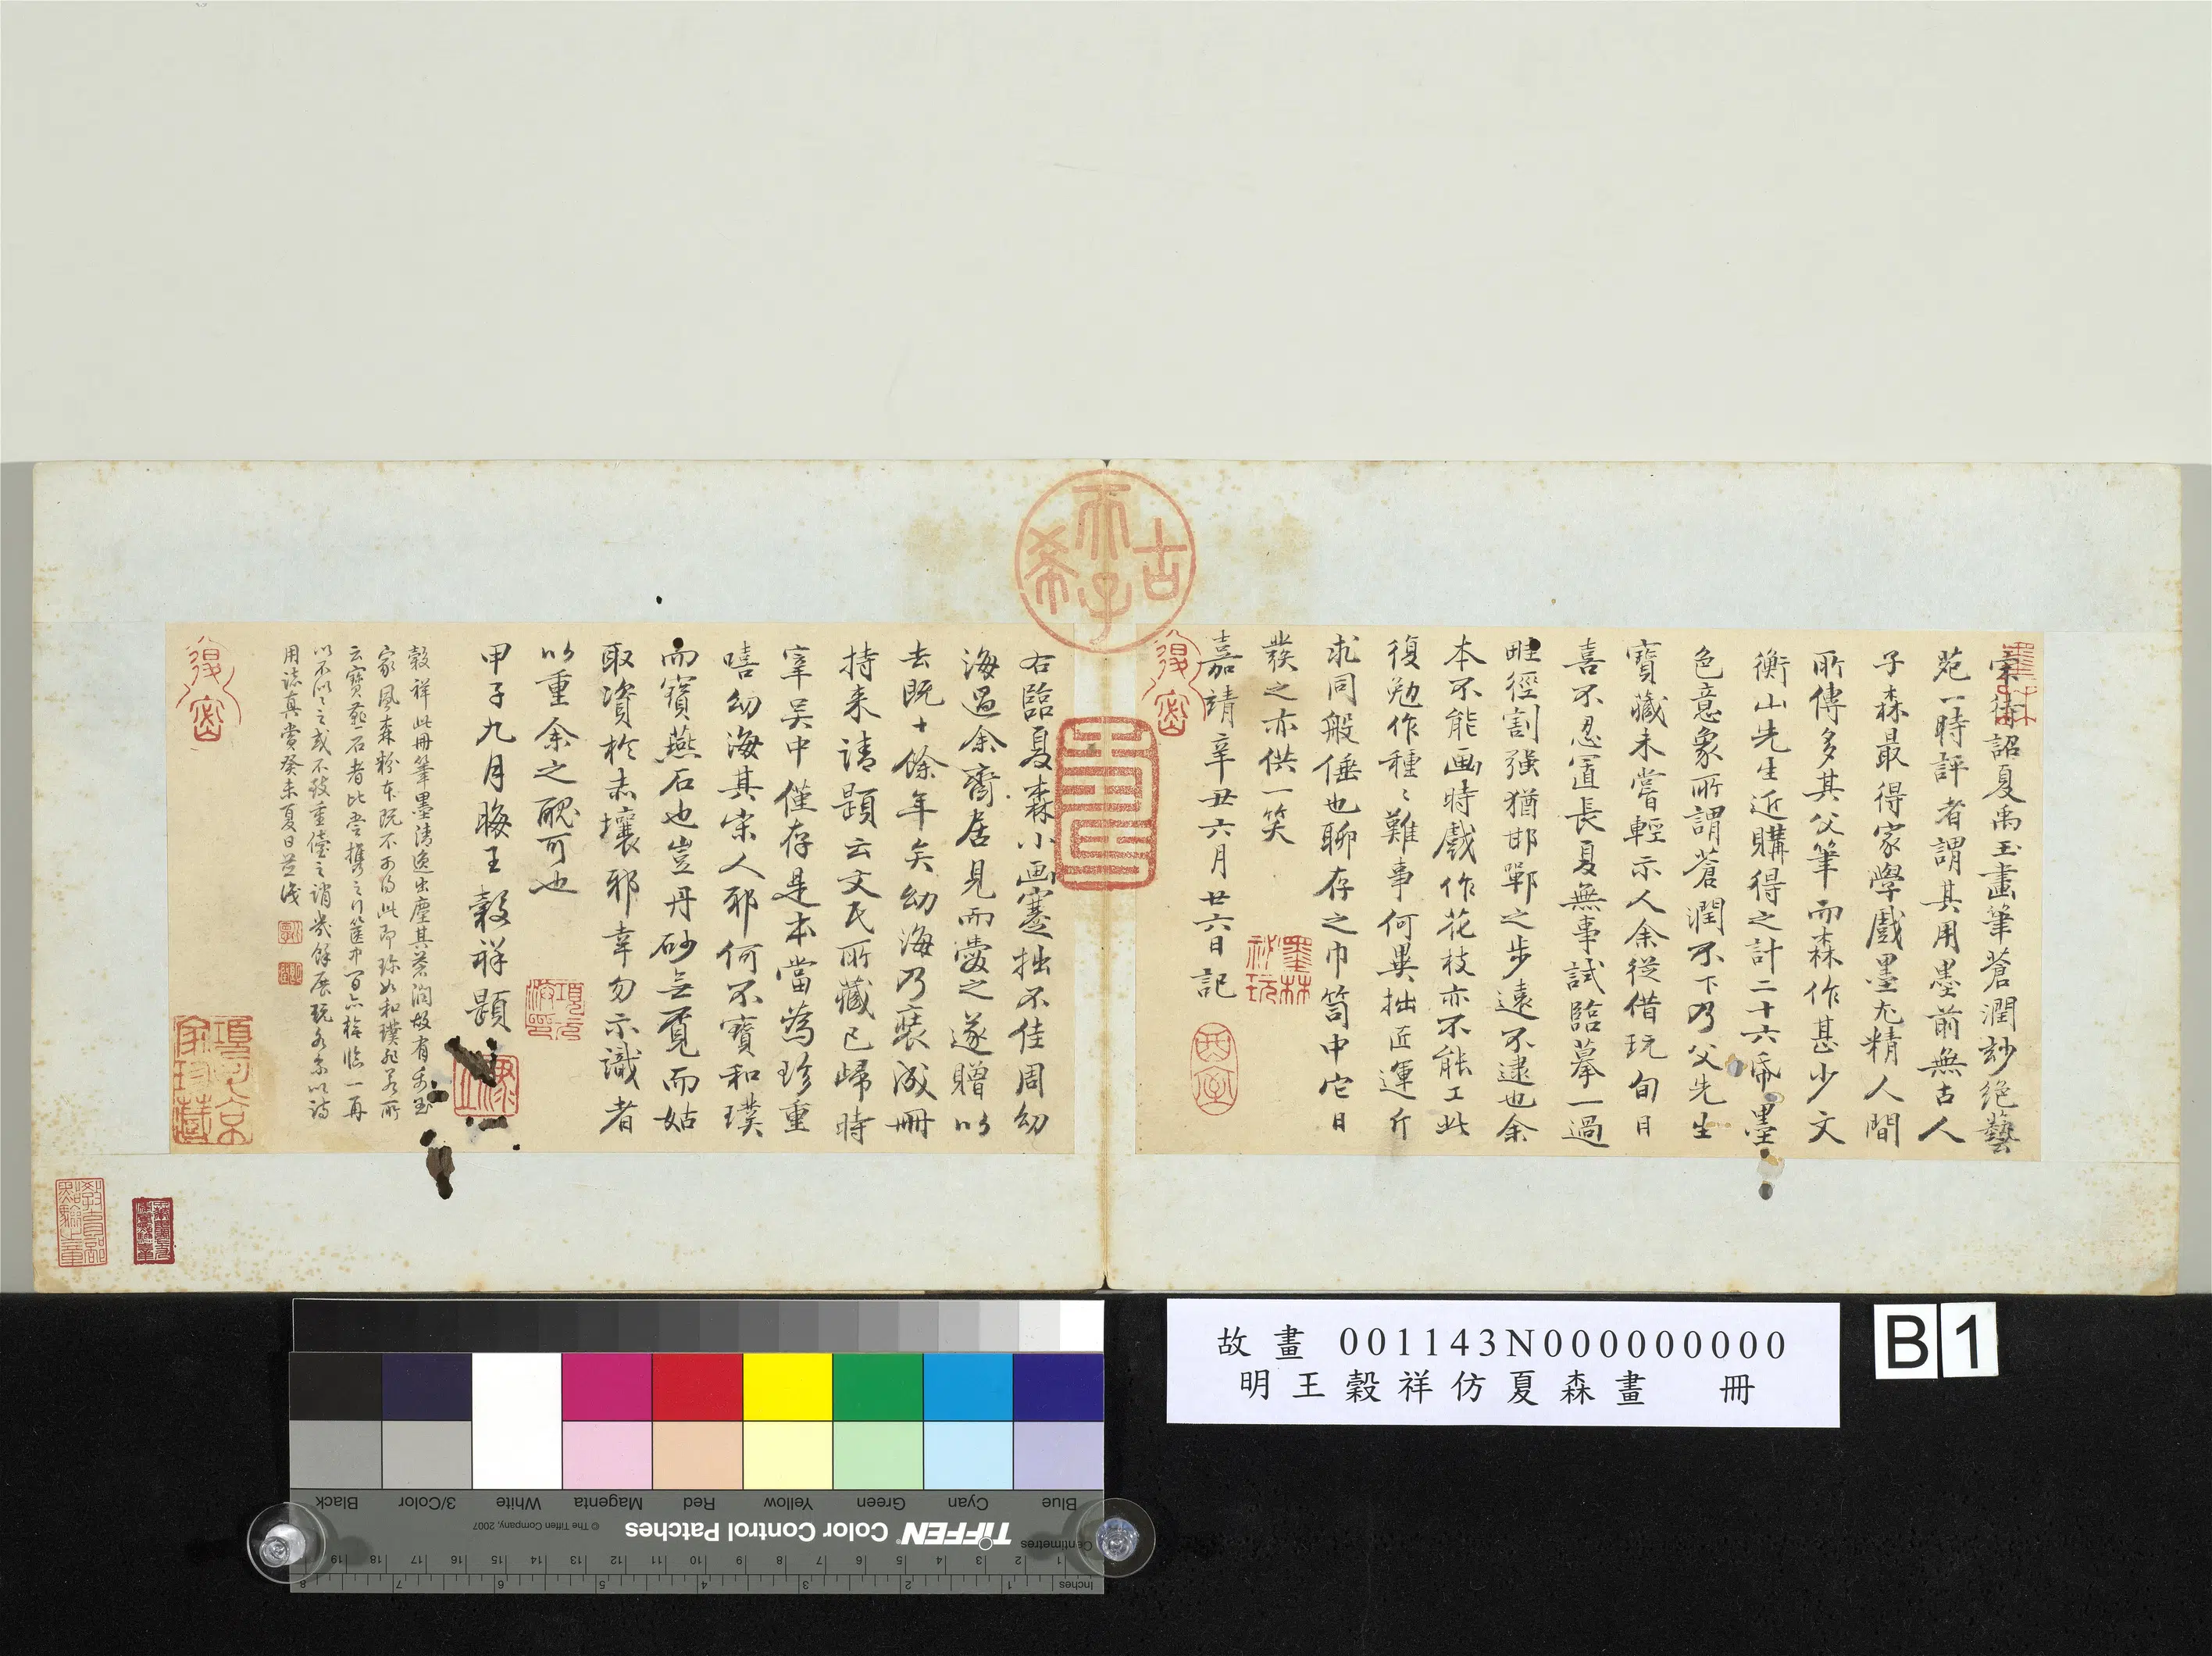 宋待詔夏禹玉畫筆蒼潤玅絕藝
苑一時評者謂其用墨前無古人
子森最得家學戲墨尤精人間
所傳多其父筆而森作甚少文
衡山先生近購得之計二十六帋墨
色意象所謂蒼潤不下乃父先生
寶藏未嘗輕示人余從借玩旬日
喜不忍置長夏無事試臨摹一過
畦徑割強猶邯鄲之步遠不逮也余
本不能画時戲作花枝亦不能工此
復勉作種〻難事何異拙匠運斤
求同般倕也聊存之巾笥中它日
發之亦供一笑
嘉靖辛丑六月廿六日記
右臨夏森小画蹇拙不佳周幼
海過余齋居見而愛之遂贈以
去既十餘年矣幼海乃裝成冊
持来請題云文氏所藏已歸時
宰吳中僅存是本當為珍重
嘻幼海其宋人邪何不寶和璞
而寶燕石也豈丹砂無覓而姑
取資於赤壤邪幸勿示識者
以重余之醜可也
甲子九月晦王穀祥題
穀祥此冊筆墨清逸出塵其蒼润故有禹玉
家風森粉本既不可得此即珍如和璞
云寶燕石者比
以不
用誌真賞癸未夏日
古希天子
壽
墨林秘玩
項元汴印
教育部點驗之章
故畫 001143N000000000
明王穀祥仿夏森畫 冊
B1
Black 3/Color White Magenta Red Yellow Green Cyan Blue
© The Tiffen Company, 2007
TIFFEN® Color Control Patches
Centimetres 1 2 3 4 5 6 7 8 9 10 11 12 13 14 15 16 17 18 19
Inches 1 2 3 4 5 6 7 8